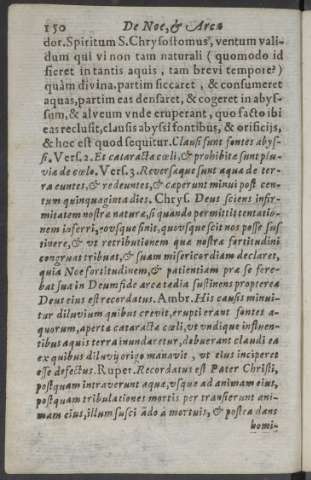 150 De Noe, & Arca
dor. Spiritum S. Chrysostomus, ventum vali-
dum qui vi non tam naturali (quomodo id
fieret in tantis aquis, tam brevi tempore?)
quàm divina, partim siccaret, & consumeret
aquas, partim eas densaret, & cogeret in abys-
sum, & alveum vnde eruperant, quo facto ibi
eas reclusit, clausis abyssi fontibus, & orificijs,
& hoc est quod sequitur. Clausi sunt fontes abys-
si. Vers. 2. Et cataractæ cœli, & prohibitæ sunt plu-
viæ de cœlo. Vers. 3. Reversæque sunt aquæ de ter-
ra euntes, & redeuntes, & cœperunt minui post cen-
tum quinquaginta dies. Chrys. Deus sciens infir-
mitatem nostræ naturæ, si quando permittit tentatio-
nem inferri, eousque sinit, quousque scit nos posse sus-
tinere, & vt retributionem quæ nostræ fortitudini
congruat tribuat, & suam misericordiam declaret,
quia Noe fortitudinem, & patientiam præ se fere-
bat sua in Deum fide arcæ tædia sustinens propterea
Deus eius est recordatus. Ambr. His causis minui-
tur diluvium quibus crevit, erupti erant fontes a-
quorum, aperta cataractæ cœli, vt vndique influen-
tibus aquis terra inundaretur, debuerant claudi ea
ex quibus diluvij origo manavit, vt eius inciperet
esse defectus. Rupert. Recordatus est Pater Christi,
postquam intraverunt aquæ, vsque ad animam eius,
postquam tribulationes mortis per transierunt ani-
mam eius, illum suscitãdo à mortuis, & postea dans
homi-